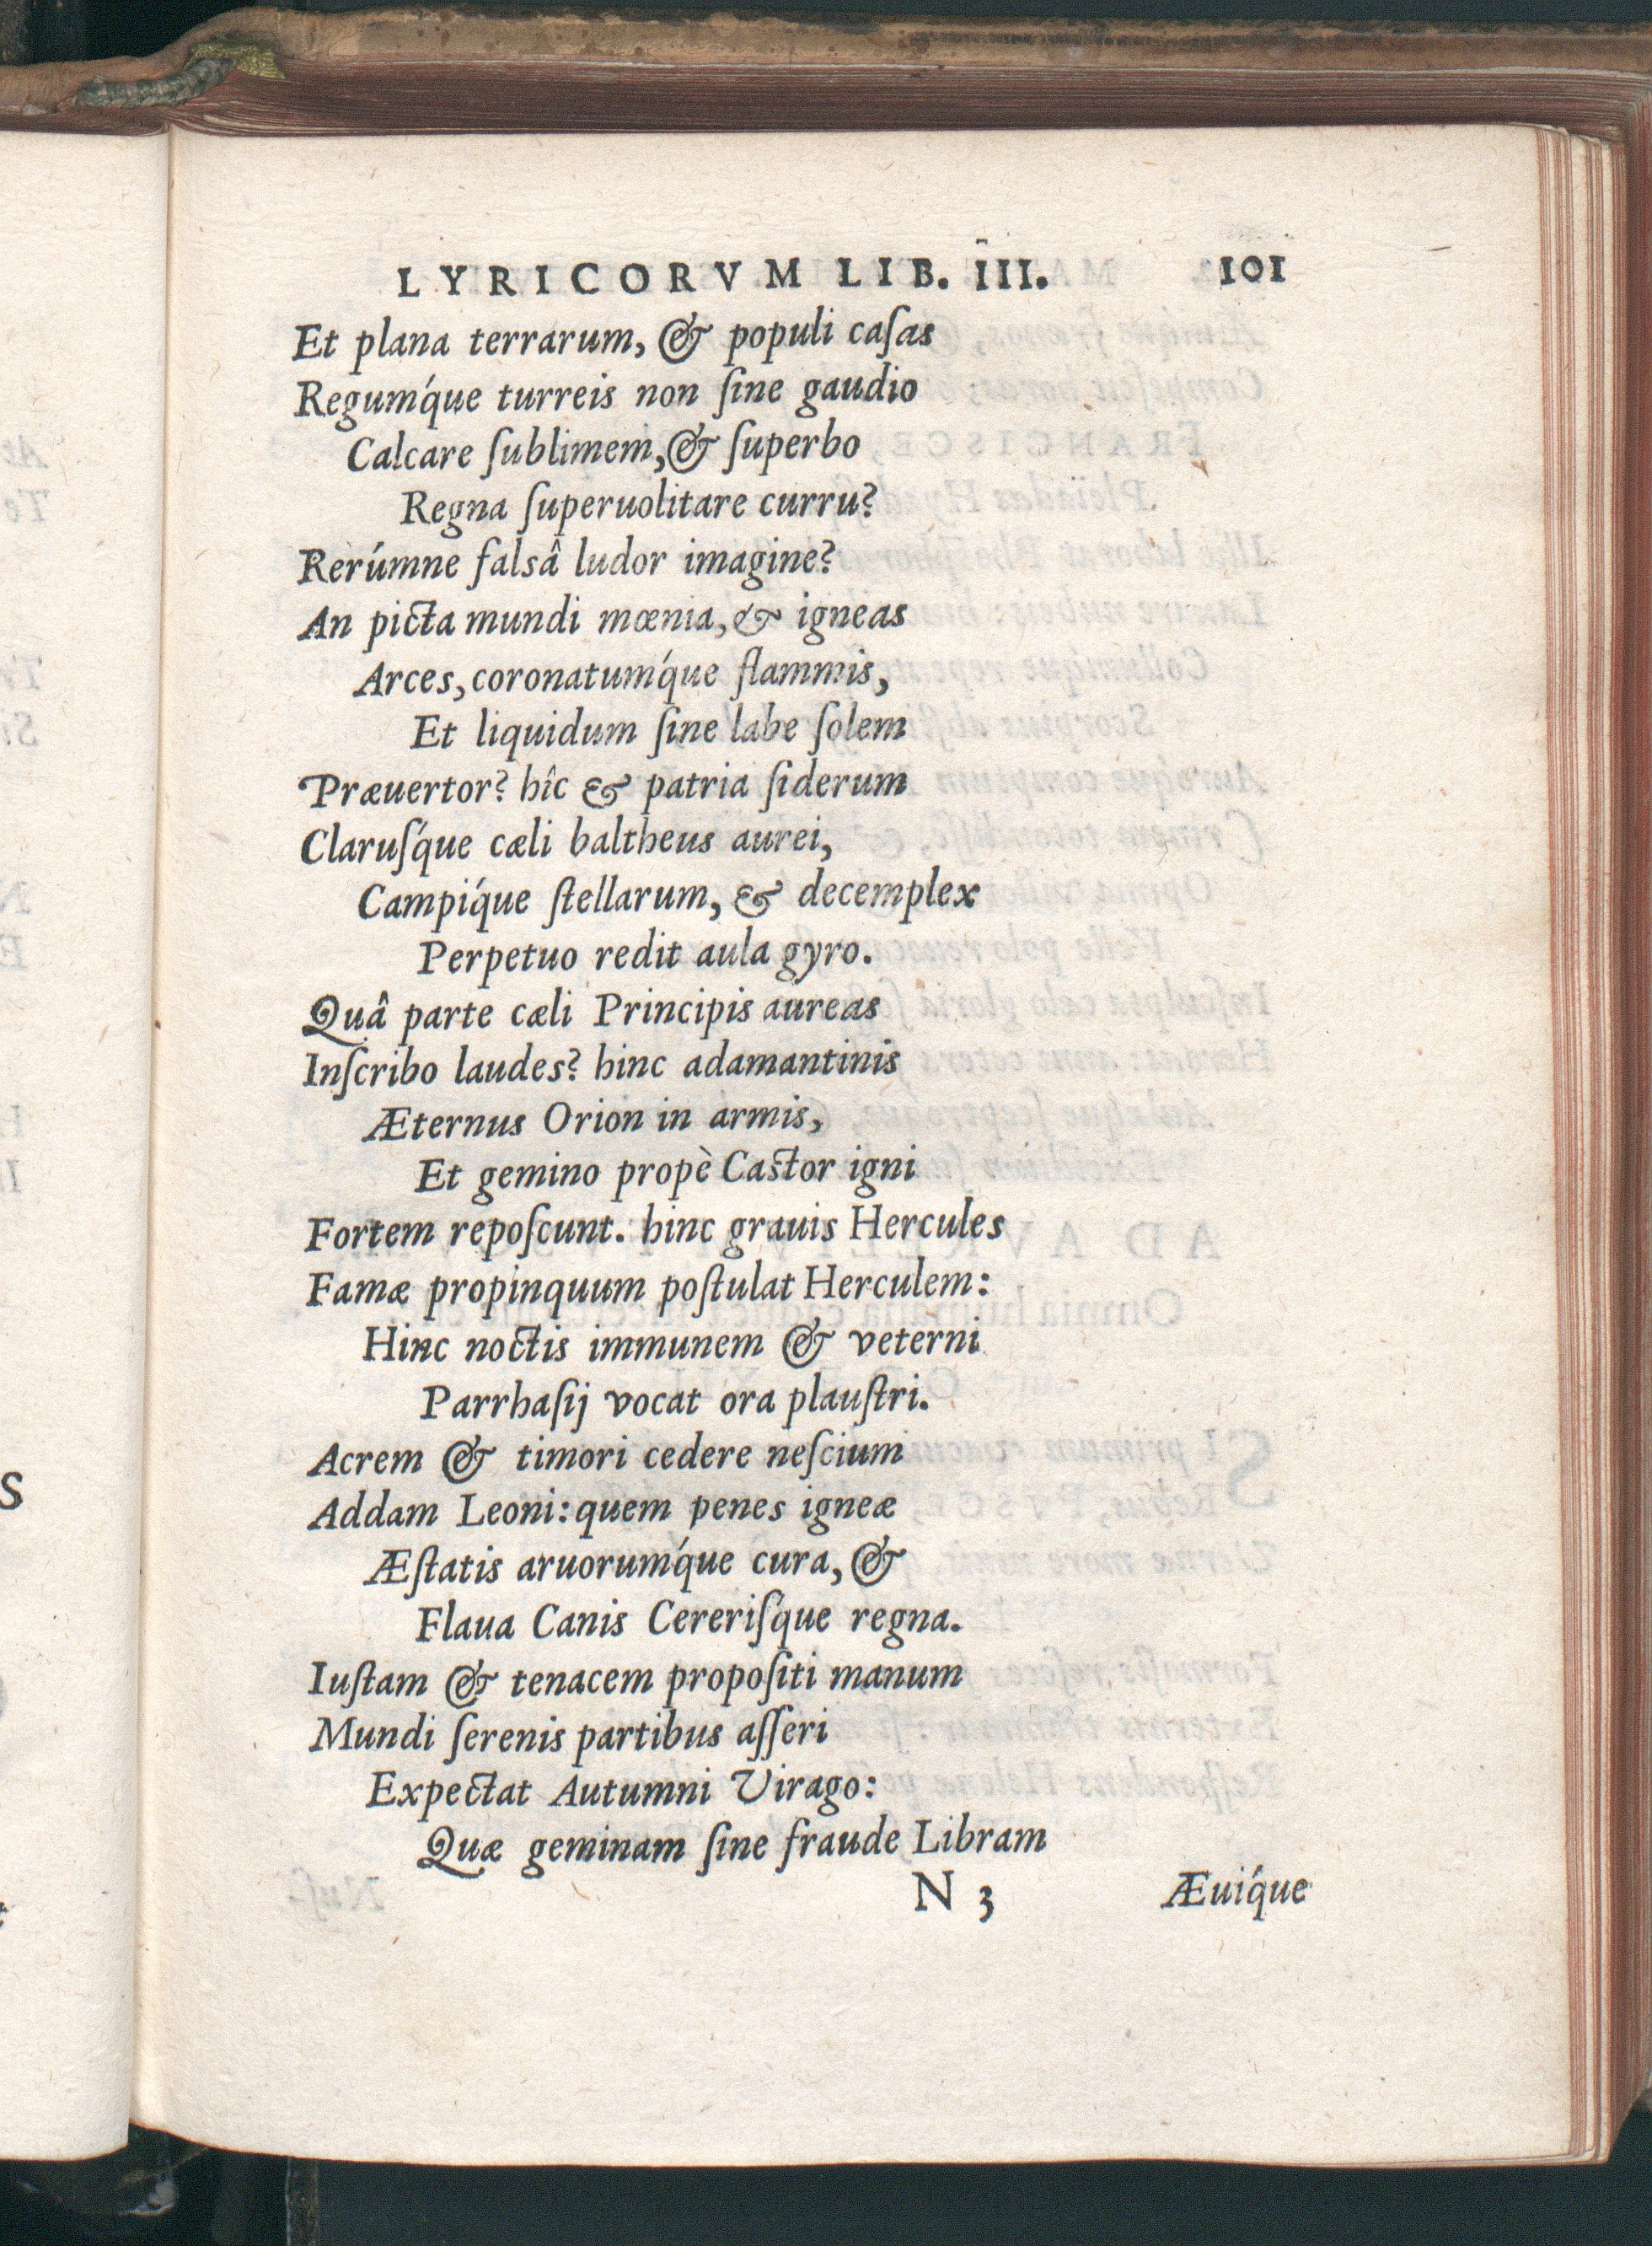 LYRICORVM LIB. III. 101
Et plana terrarum, & populi caſas
Regumq́ue turreis non ſine gaudio
Calcare ſublimem, & ſuperbo
Regna ſuperuolitare curru?
Rerúmne falsâ ludor imagine?
An picta mundi mœnia, & igneas
Arces, coronatumq́ue flammis,
Et liquidum ſine labe ſolem
Præuertor? hîc & patria ſiderum
Claruſq́ue cæli baltheus aurei,
Campiq́ue ſtellarum, & decemplex
Perpetuo redit aula gyro.
Quâ parte cæli Principis aureas
Inſcribo laudes? hinc adamantinis
Æternus Orion in armis,
Et gemino propè Castor igni
Fortem repoſcunt. hinc grauis Hercules
Famæ propinquum poſtulat Herculem:
Hinc noctis immunem & veterni
Parrhaſij vocat ora plauſtri.
Acrem & timori cedere neſcium
Addam Leoni: quem penes igneæ
Æſtatis aruorumq́ue cura, &
Flaua Canis Cereriſque regna.
Iuſtam & tenacem propoſiti manum
Mundi ſerenis partibus aſſeri
Expectat Autumni Virago:
Quæ geminam ſine fraude Libram
N 3 Æuiq́ue